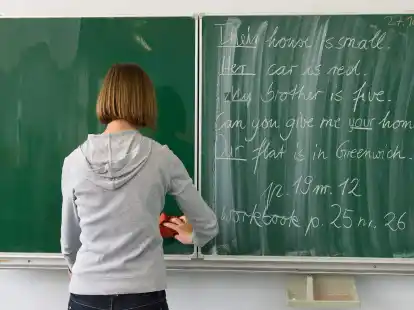 27.1
Their house is small.
Her car is red.
My brother is five.
Can you give me your hom
Our flat is in Greenwich.
p. 19 nr. 12
workbook p. 25 nr. 26